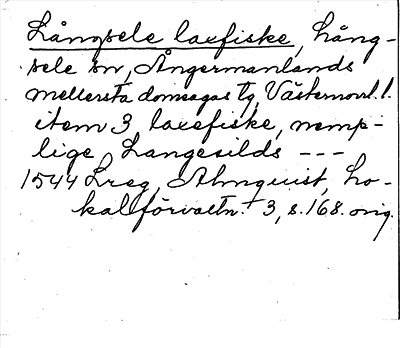 Långsele laxfiske, Lång-
sele sn, Ångermanlands
mellersta domsagas tg, Västernorrl. l.
item 3 laxefiske, nemp-
lige, Langesilds ---
1544 Lreg, Almquist, Lo-
kalförvaltn. 3, s. 168. orig.